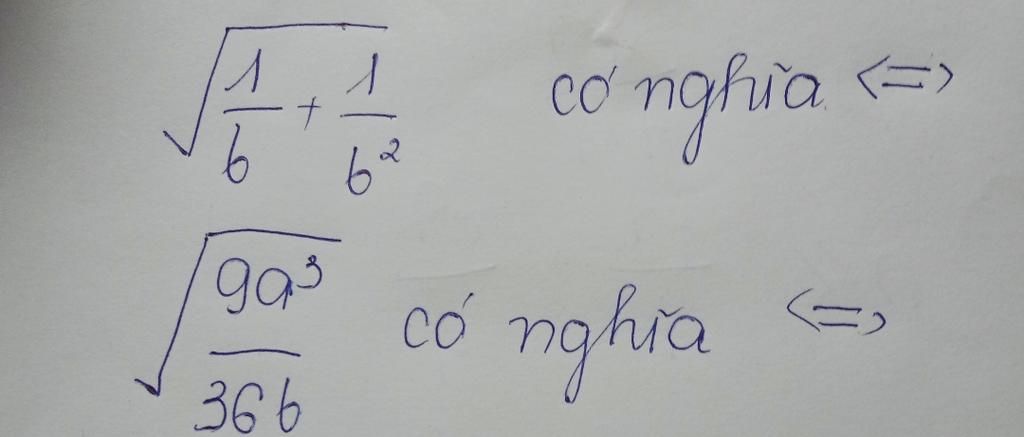 √(1/b + 1/b²) có nghĩa <=>
√(9a³/36b) có nghĩa <=>